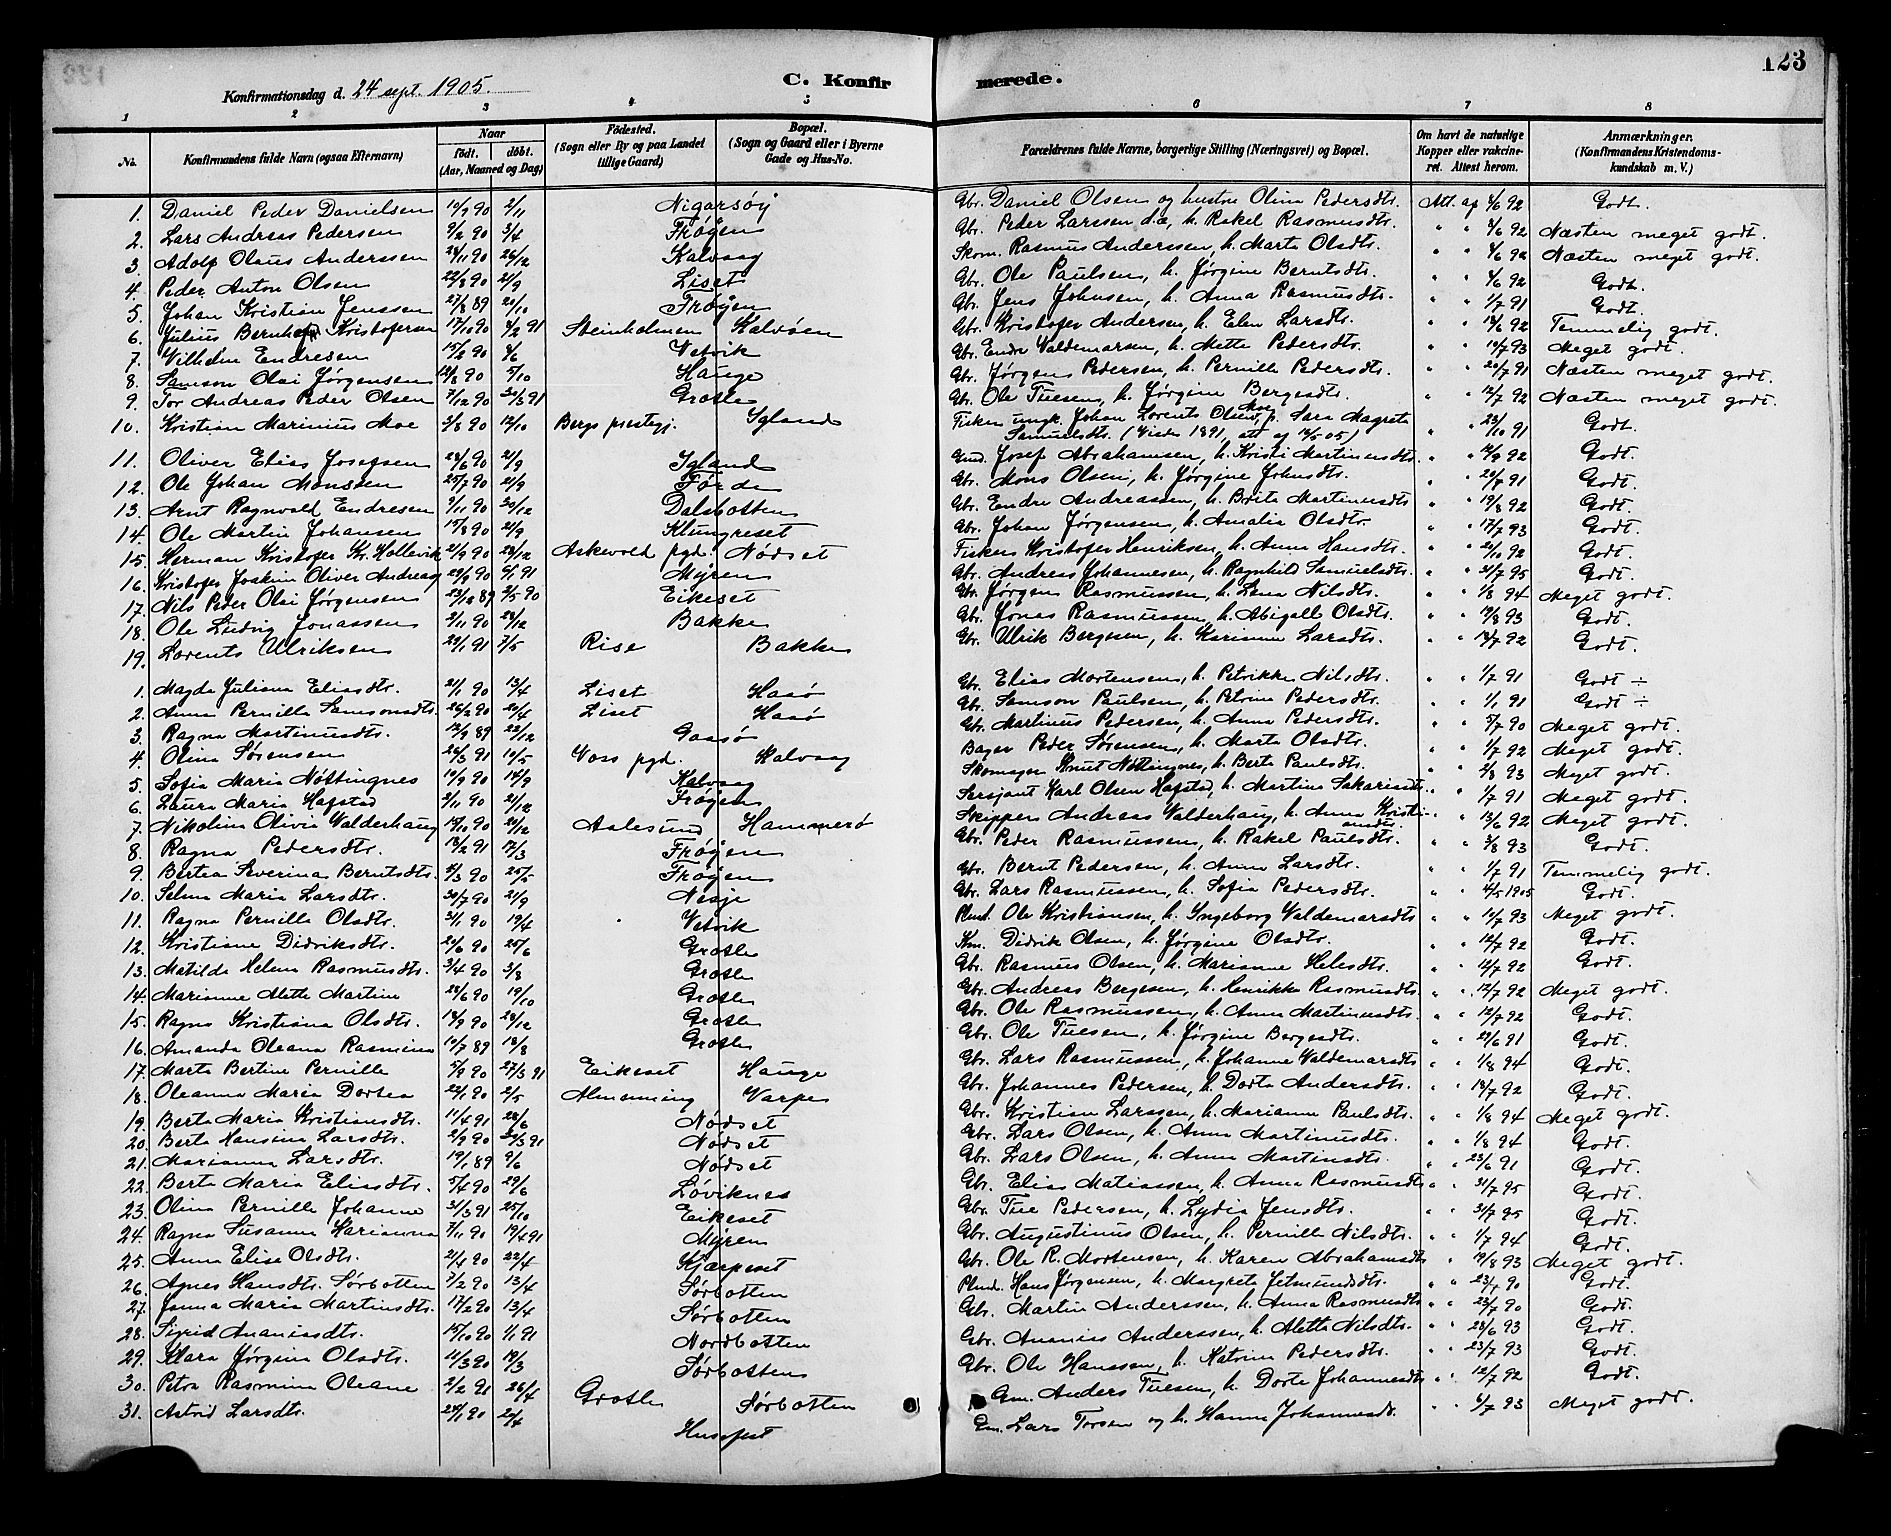 123
Konfirmationsdag d. 24 sept. 1905.
C. Konfirmerede.
1 2 3 4 5 6 7 8
No. Konfirmandens fulde Navn (ogsaa Efternavn) Naar født. døbt. (Aar, Maaned og Dag) Fødested. (Sogn eller By og paa Landet tillige Gaard) Bopæl. (Sogn og Gaard eller i Byerne Gade og Hus-No. Forældrenes fulde Navne, borgerlige Stilling (Næringsvei) og Bopæl. Om havt de naturlige Kopper eller vakcineret. Attest herom. Anmærkninger. (Konfirmandens Kristendomskundskab m. V.)
1. Daniel Peder Danielsen 10/9 90 2/11 Nigarsøy Gbr. Daniel Olsen og hustru Olina Pedersdtr. Att. af 4/6 92 Godt.
2. Lars Andreas Pedersen 9/2 90 3/4 Frøyen Gbr. Peder Larssen d.æ., h. Rakel Rasmusdtr. " " 4/6 92 Næsten meget godt.
3. Adolf Olaus Anderssen 24/11 90 26/12 Kalvaag Skom. Rasmus Anderssen, h. Marta Olsdtr. " " 4/6 92 Næsten meget godt.
4. Peder Anton Olsen 22/8 90 21/9 Liset Gbr. Ole Paulsen, h. Jørgine Berntsdtr. " " 4/6 92 Godt.
5. Johan Kristian Jenssen 27/8 89 20/10 Frøyen Gbr. Jens Johnsen, h. Anna Rasmusdtr. " " 1/7 91 Godt.
6. Julius Bernhard Kristofersen 17/10 90 4/2 91 Steinholmen Kalvøen Gbr. Kristofer Andersen, h. Elen Larsdtr. " " 14/6 92 Temmelig godt.
7. Vilhelm Endresen 15/2 90 4/6 Vetvik Gbr. Endre Valdemarsen, h. Mette Pedersdtr. " " 10/7 93 Meget godt.
8. Samson Olai Jørgensen 12/8 90 5/10 Hauge Gbr. Jørgen Pedersen, h. Pernille Pedersdtr. " " 20/7 91 Næsten meget godt.
9. Tor Andreas Peder Olsen 7/12 90 30/3 91 Grotle Gbr. Ole Tuesen, h. Jørgine Bergesdtr. " " 12/7 92 Næsten meget godt.
10. Kristian Marinius Moe 3/8 90 12/10 Bergs prestegj. Igland Fisker ungk. Johan Lorents Olsen Moe, p. Sara Magreta
Samuelsdtr. (Viede 1891, att. af 14/5 05) " 23/10 91 Godt.
11. Oliver Elias Josefsen 28/6 90 21/9 Igland Gmd. Josef Abrahamsen, h. Kristi Martinusdtr. " " 14/9 92 Godt.
12. Ole Johan Monssen 25/7 90 21/9 Førde Gbr. Mons Olsen, h. Jørgine Johnsdtr. " " 20/7 91 Godt.
13. Arnt Ragnvald Endresen 9/11 90 30/12 Dalsbotten Gbr. Endre Andreassen, h. Brita Martinusdtr. " " 19/8 92 Godt.
14. Ole Martin Johansen 15/8 90 21/9 Klungreset Gbr. Johan Jørgensen, h. Amalia Olsdtr. " " 17/7 93 Godt.
15. Herman Kristofer Kr. Hellevik 21/9 90 28/12 Askevold pgd. Nødset Fisker Kristofer Henriksen, h. Anna Hansdtr. " " 21/10 92 Godt.
16. Kristofer Joakim Oliver Andreas 29/9 90 6/1 91 Myren Gbr. Andreas Johannesen, h. Ragnhild Samuelsdtr. " " 31/7 95 Godt.
17. Nils Peder Olai Jørgensen 23/12 89 9/5 90 Eikeset Gbr. Jørgen Rasmussen, h. Lena Nilsdtr. " " 1/8 94 Meget godt.
18. Ole Ludvig Jonassen 3/11 90 28/12 Bakke Gbr. Jonas Rasmussen, h. Abigall Olsdtr. " " 14/8 93 Godt.
19. Lorents Ulriksen 29/1 91 7/5 Rise Bakke Gbr. Ulrik Bergesen, h. Karianna Larsdtr. " " 14/7 92 Godt.
1. Magda Juliana Eliasdtr. 21/1 90 13/4 Liset Hasø Gbr. Elias Mortensen, h. Petrikke Nilsdtr. " " 1/7 91 Godt ÷
2. Anna Pernille Samsonsdtr. 26/2 90 20/4 Liset Hasø Gbr. Samson Paulsen, h. Petrine Pedersdtr. " " 1/1 91 Godt ÷
3. Ragna Martinusdtr. 12/9 89 22/12 Gaasø Gbr. Martinus Pedersen, h. Anna Pedersdtr. " " 5/7 90 Meget godt.
4. Olina Sørensen 26/3 91 10/5 Voss pgd. Kalvaag Bager Peder Sørensen, h. Marta Olsdtr. " " 1/7 92 Meget godt.
5. Sofia Maria Nøttingnes 10/9 90 14/9 Kalvaag Skomager Knut Nøttingnes, h. Berta Paulsdtr. " " 2/8 93 Meget godt.
6. Laura Maria Hafstad 2/11 90 21/12 Frøyen Sersjant Karl Olsen Hafstad, h. Martina Sakariasdtr. " " 1/7 91 Meget godt.
7. Nikolina Olivia Valderhaug 15/10 90 20/12 Aalesund Hammerø Skipper Andreas Valderhaug, h. Anna Kristiansdtr. " " 13/6 92 Meget godt.
8. Ragna Pedersdtr. 14/2 91 17/3 Frøyen Gbr. Peder Rasmussen, h. Rakel Paulsdtr. " " 3/8 93 Godt.
9. Bertea Severina Berntsdtr. 5/3 90 25/5 Frøyen Gbr. Bernt Pedersen, h. Anna Larsdtr. " " 1/7 91 Temmelig godt.
10. Selma Maria Larsdtr. 30/7 90 21/9 Nesje Gbr. Lars Rasmussen, h. Sofia Pedersdtr. " " 4/5 1905 Godt.
11. Ragna Pernille Olsdtr. 3/1 90 19/4 Vetvik Plmd. Ole Kristiansen, h. Ingeborg Valdemarsdtr " " 10/7 93 Meget godt.
12. Kristiane Didriksdtr. 21/6 90 25/6 Grotle Km. Didrik Olsen, h. Jørgine Olsdtr. " " 12/7 92 Godt.
13. Matilda Helena Rasmusdtr. 3/4 90 3/8 Grotle Gbr. Rasmus Olsen, h. Marianne Helesdtr. " " 12/7 92 Godt.
14. Marianne Alette Martine 28/6 90 19/10 Grotle Gbr. Andreas Bergesen, h. Henrikke Rasmusdtr. " " 12/7 92 Meget godt.
15. Ragna Kristiana Olsdtr. 14/9 90 28/12 Grotle Gbr. Ole Rasmussen, h. Anna Martinusdtr. " " 12/7 92 Godt.
16. Amanda Oleana Rasmina 10/7 89 18/8 Grotle Gbr. Ole Tuesen, h. Jørgine Bergesdtr. " " 21/6 91 Godt.
17. Marta Bertine Pernille 5/9 90 27/3 91 Eikeset Hauge Gbr. Lars Rasmussen, h. Johanne Valdemarsdtr " " 1/8 94 Godt.
18. Oleanna Maria Dortea 22/1 90 2/5 Almenning Varpe Gbr. Johannes Pedersen, h. Dorta Andersdtr. " " 18/7 92 Godt.
19. Berta Maria Kristiansdtr. 11/4 91 28/6 Nødset Gbr. Kristian Larssen, h. Marianna Paulsdtr. " " 1/8 94 Meget godt.
20. Berta Hansina Larsdtr. 2/9 90 30/3 91 Nødset Gbr. Lars Olsen, h. Anna Martinusdtr. " " 1/8 94 Godt.
21. Marianna Larsdtr. 19/1 89 9/6 Nødset Gbr. Lars Olsen, h. Anna Martinsdtr. " " 23/6 91 Godt.
22. Berta Maria Eliasdtr. 5/4 90 29/6 Løviknes Gbr. Elias Matiassen, h. Anna Rasmusdtr " " 31/7 95 Godt.
23. Olina Pernille Johanne 31/3 91 25/10 Eikeset Gbr. Tue Pedersen, h. Lydia Jensdtr. " " 31/7 95 Godt.
24. Ragna Susanna Karianna 7/11 90 19/4 91 Myren Gbr. Augustinus Olsen, h. Pernille Nilsdtr. " " 1/7 94 Godt.
25. Anna Elise Olsdtr. 21/4 90 22/4 Kjærpeset Gbr. Ole R. Mortensen, h. Karen Abrahamsdtr " " 19/8 93 Meget godt.
26. Agnes Hansdtr. Sørbotten 7/2 90 13/4 Sørbotten Plmd. Hans Jørgensen, h. Margrete Jetmundsdtr. " " 23/7 90 Godt.
27. Janna Maria Martinsdtr. 17/2 90 13/4 Sørbotten Gbr. Martin Anderssen, h. Anna Rasmusdtr " " 23/7 90 Godt.
28. Sigrid Ananiasdtr. 15/10 90 1/1 91 Nordbotten Gbr. Ananias Anderssen, h. Alette Nilsdtr. " " 28/6 93 Godt.
29. Klara Jørgina Olsdtr. 11/3 90 19/3 Sørbotten Gbr. Ole Hanssen, h. Katrine Pedersdtr. " " 23/7 93 Godt.
30. Petra Rasmina Oleane 2/2 91 26/4 Grotle Sørbotten Gm. Anders Tuesen, h. Dorte Johannesdtr " " 12/7 92 Godt.
31. Astrid Larsdtr. 24/1 90 20/4 Husefest Gm. Lars Torsen og h. Hanna Johannesdt. " " 6/7 93 Meget godt.